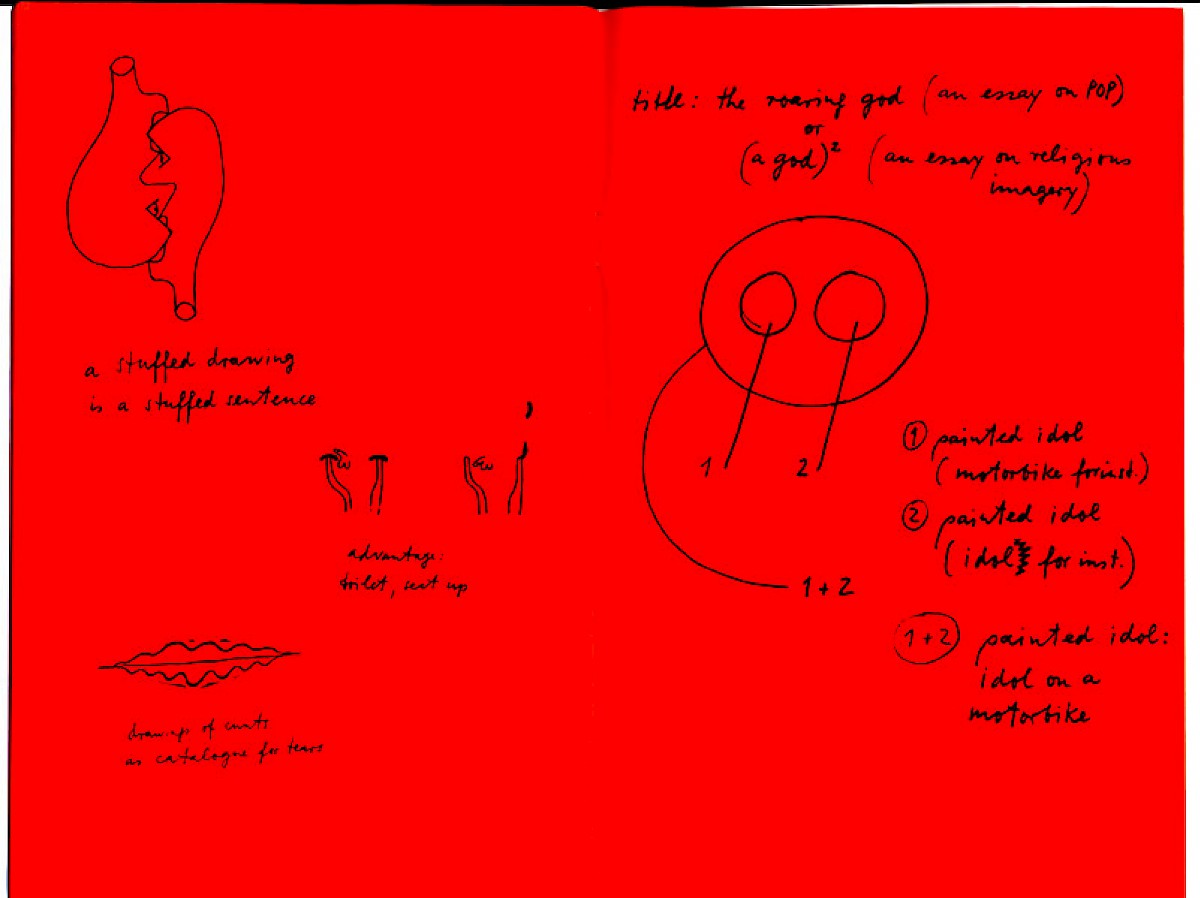 a stuffed drawing
is a stuffed sentence
advantage:
toilet, set up
drawings of cunts
as catalogue for tears
title: the roaring god (an essay on POP)
or
(a god)² (an essay on religious
imagery)
1 2
1 + 2
① painted idol
(motorbike for inst.)
② painted idol
(idol for inst.)
1 + 2 painted idol:
idol on a
motorbike